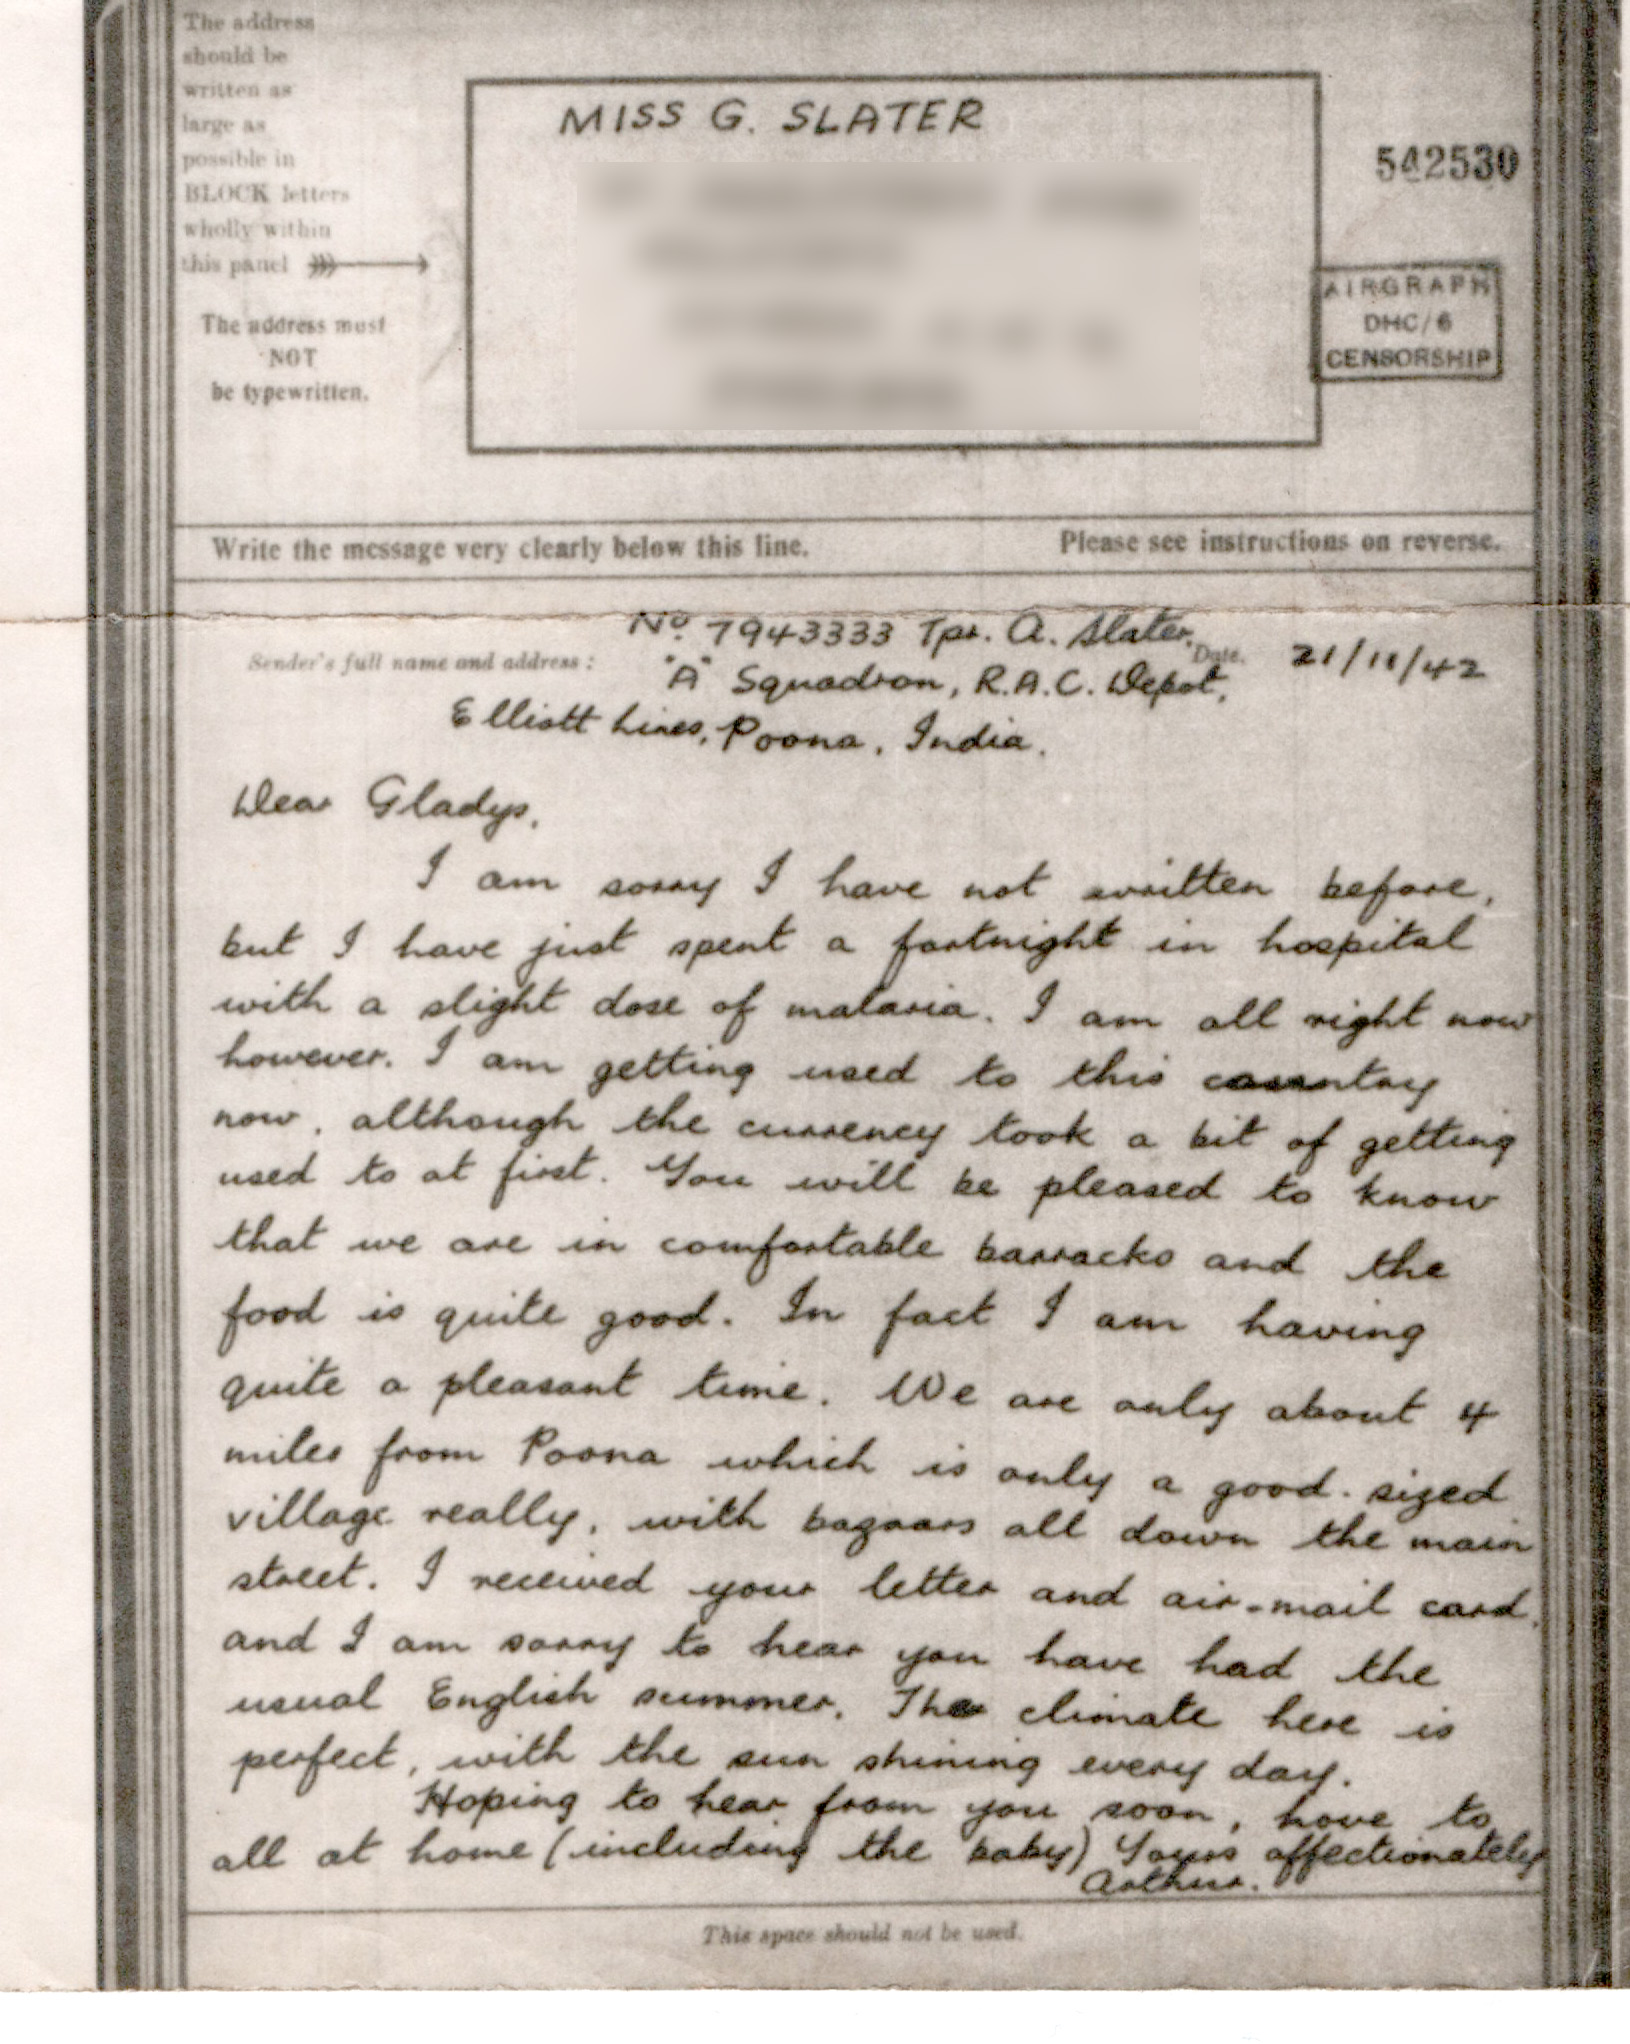 The address
should be
written as
large as
possible in
BLOCK letters
wholly within
this panel
The address must
NOT
be typewritten.
MISS G. SLATER
542530
AIRGRAPH
DHC/6
CENSORSHIP
Write the message very clearly below this line.
Please see instructions on reverse.
Sender's full name and address:
No. 7943333 Tpr. A. Slater,
"A" Squadron, R.A.C. Depot,
Elliott Lines, Poona, India.
Date. 21/11/42
Dear Gladys,
I am sorry I have not written before,
but I have just spent a fortnight in hospital
with a slight dose of malaria. I am all right now
however. I am getting used to this country
now, although the currency took a bit of getting
used to at first. You will be pleased to know
that we are in comfortable barracks and the
food is quite good. In fact I am having
quite a pleasant time. We are only about 4
miles from Poona which is only a good-sized
village really, with bazaars all down the main
street. I received your letter and air-mail card,
and I am sorry to hear you have had the
usual English summer. The climate here is
perfect, with the sun shining every day.
Hoping to hear from you soon, love to
all at home (including the baby) Yours affectionately
Arthur.
This space should not be used.